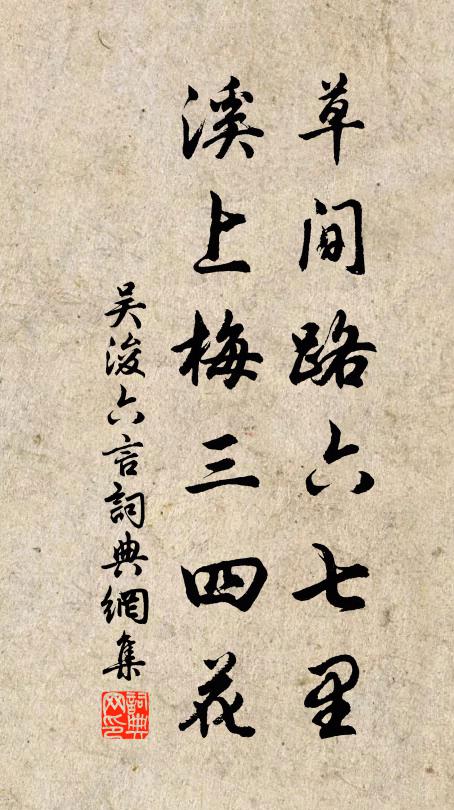 草間路六七里
溪上梅三四花
吴浚六言詞典網集
詞典网印